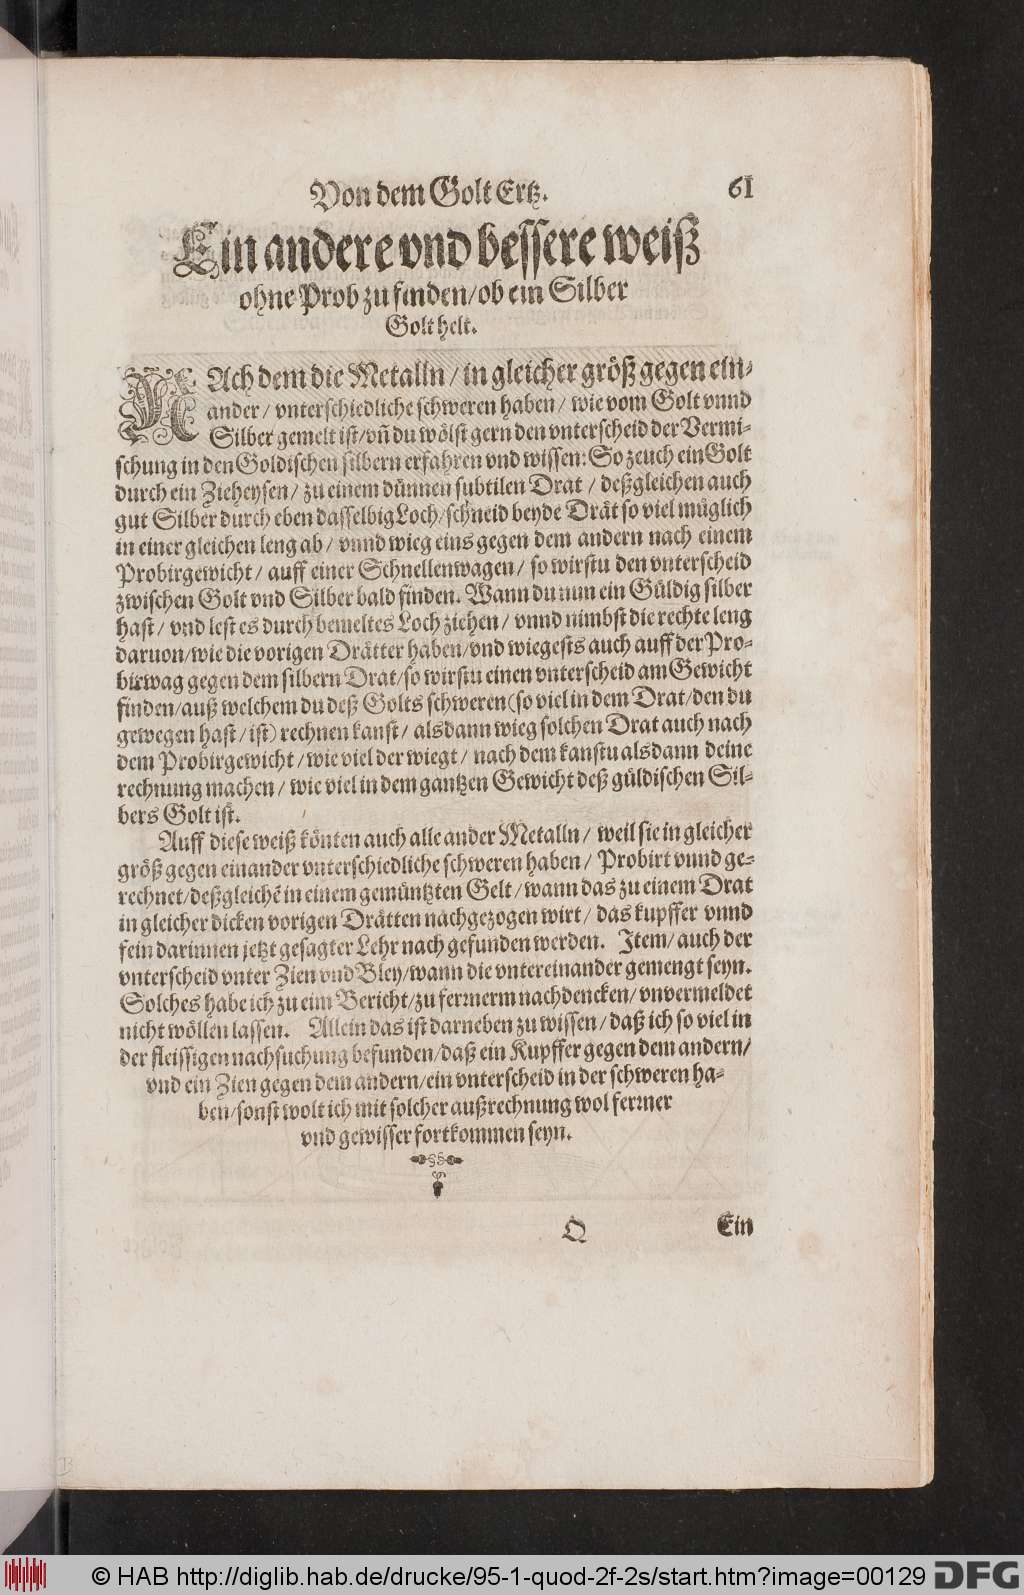 Von dem Golt Ertz. 61
Ein andere vnd bessere weiß
ohne Prob zu finden/ ob ein Silber
Golt helt.
NAch dem die Metalln/ in gleicher größ gegen ein-
ander/ vnterschiedliche schweren haben/ wie vom Golt vnnd
Silber gemelt ist/ vñ du wölst gern den vnterscheid der Vermi-
schung in den Goldischen silbern erfahren vnd wissen: So zeuch ein Golt
durch ein Zieheysen/ zu einem dünnen subtilen Drat/ deßgleichen auch
gut Silber durch eben dasselbig Loch/ schneid beyde Drät so viel müglich
in einer gleichen leng ab/ vnnd wieg eins gegen dem andern nach einem
Probirgewicht/ auff einer Schnellenwagen/ so wirstu den vnterscheid
zwischen Golt vnd Silber bald finden. Wann du nun ein Güldig silber
hast/ vnd lest es durch bemeltes Loch ziehen/ vnnd nimbst die rechte leng
daruon/ wie die vorigen Drätter haben/ vnd wiegests auch auff der Pro-
birwag gegen dem silbern Drat/ so wirstu einen vnterscheid am Gewicht
finden/ auß welchem du deß Golts schweren (so viel in dem Drat/ den du
gewegen hast/ ist) rechnen kanst/ alsdann wieg solchen Drat auch nach
dem Probirgewicht/ wie viel der wiegt/ nach dem kanstu alsdann deine
rechnung machen/ wie viel in dem gantzen Gewicht deß güldischen Sil-
bers Golt ist.
Auff diese weiß könten auch alle ander Metalln/ weil sie in gleicher
größ gegen einander vnterschiedliche schweren haben/ Probirt vnnd ge-
rechnet/ deßgleichē in einem gemüntzten Gelt/ wann das zu einem Drat
in gleicher dicken vorigen Drätten nachgezogen wirt/ das kupffer vnnd
fein darinnen jetzt gesagter Lehr nach gefunden werden. Item/ auch der
vnterscheid vnter Zien vnd Bley/ wann die vntereinander gemengt seyn.
Solches habe ich zu eim Bericht/ zu fernerm nachdencken/ vnvermeldet
nicht wöllen lassen. Allein das ist darneben zu wissen/ daß ich so viel in
der fleissigen nachsuchung befunden/ daß ein Kupffer gegen dem andern/
vnd ein Zien gegen dem andern/ ein vnterscheid in der schweren ha-
ben/ sonst wolt ich mit solcher außrechnung wol ferrner
vnd gewisser fortkommen seyn.
Q Ein
© HAB http://diglib.hab.de/drucke/95-1-quod-2f-2s/start.htm?image=00129 DFG